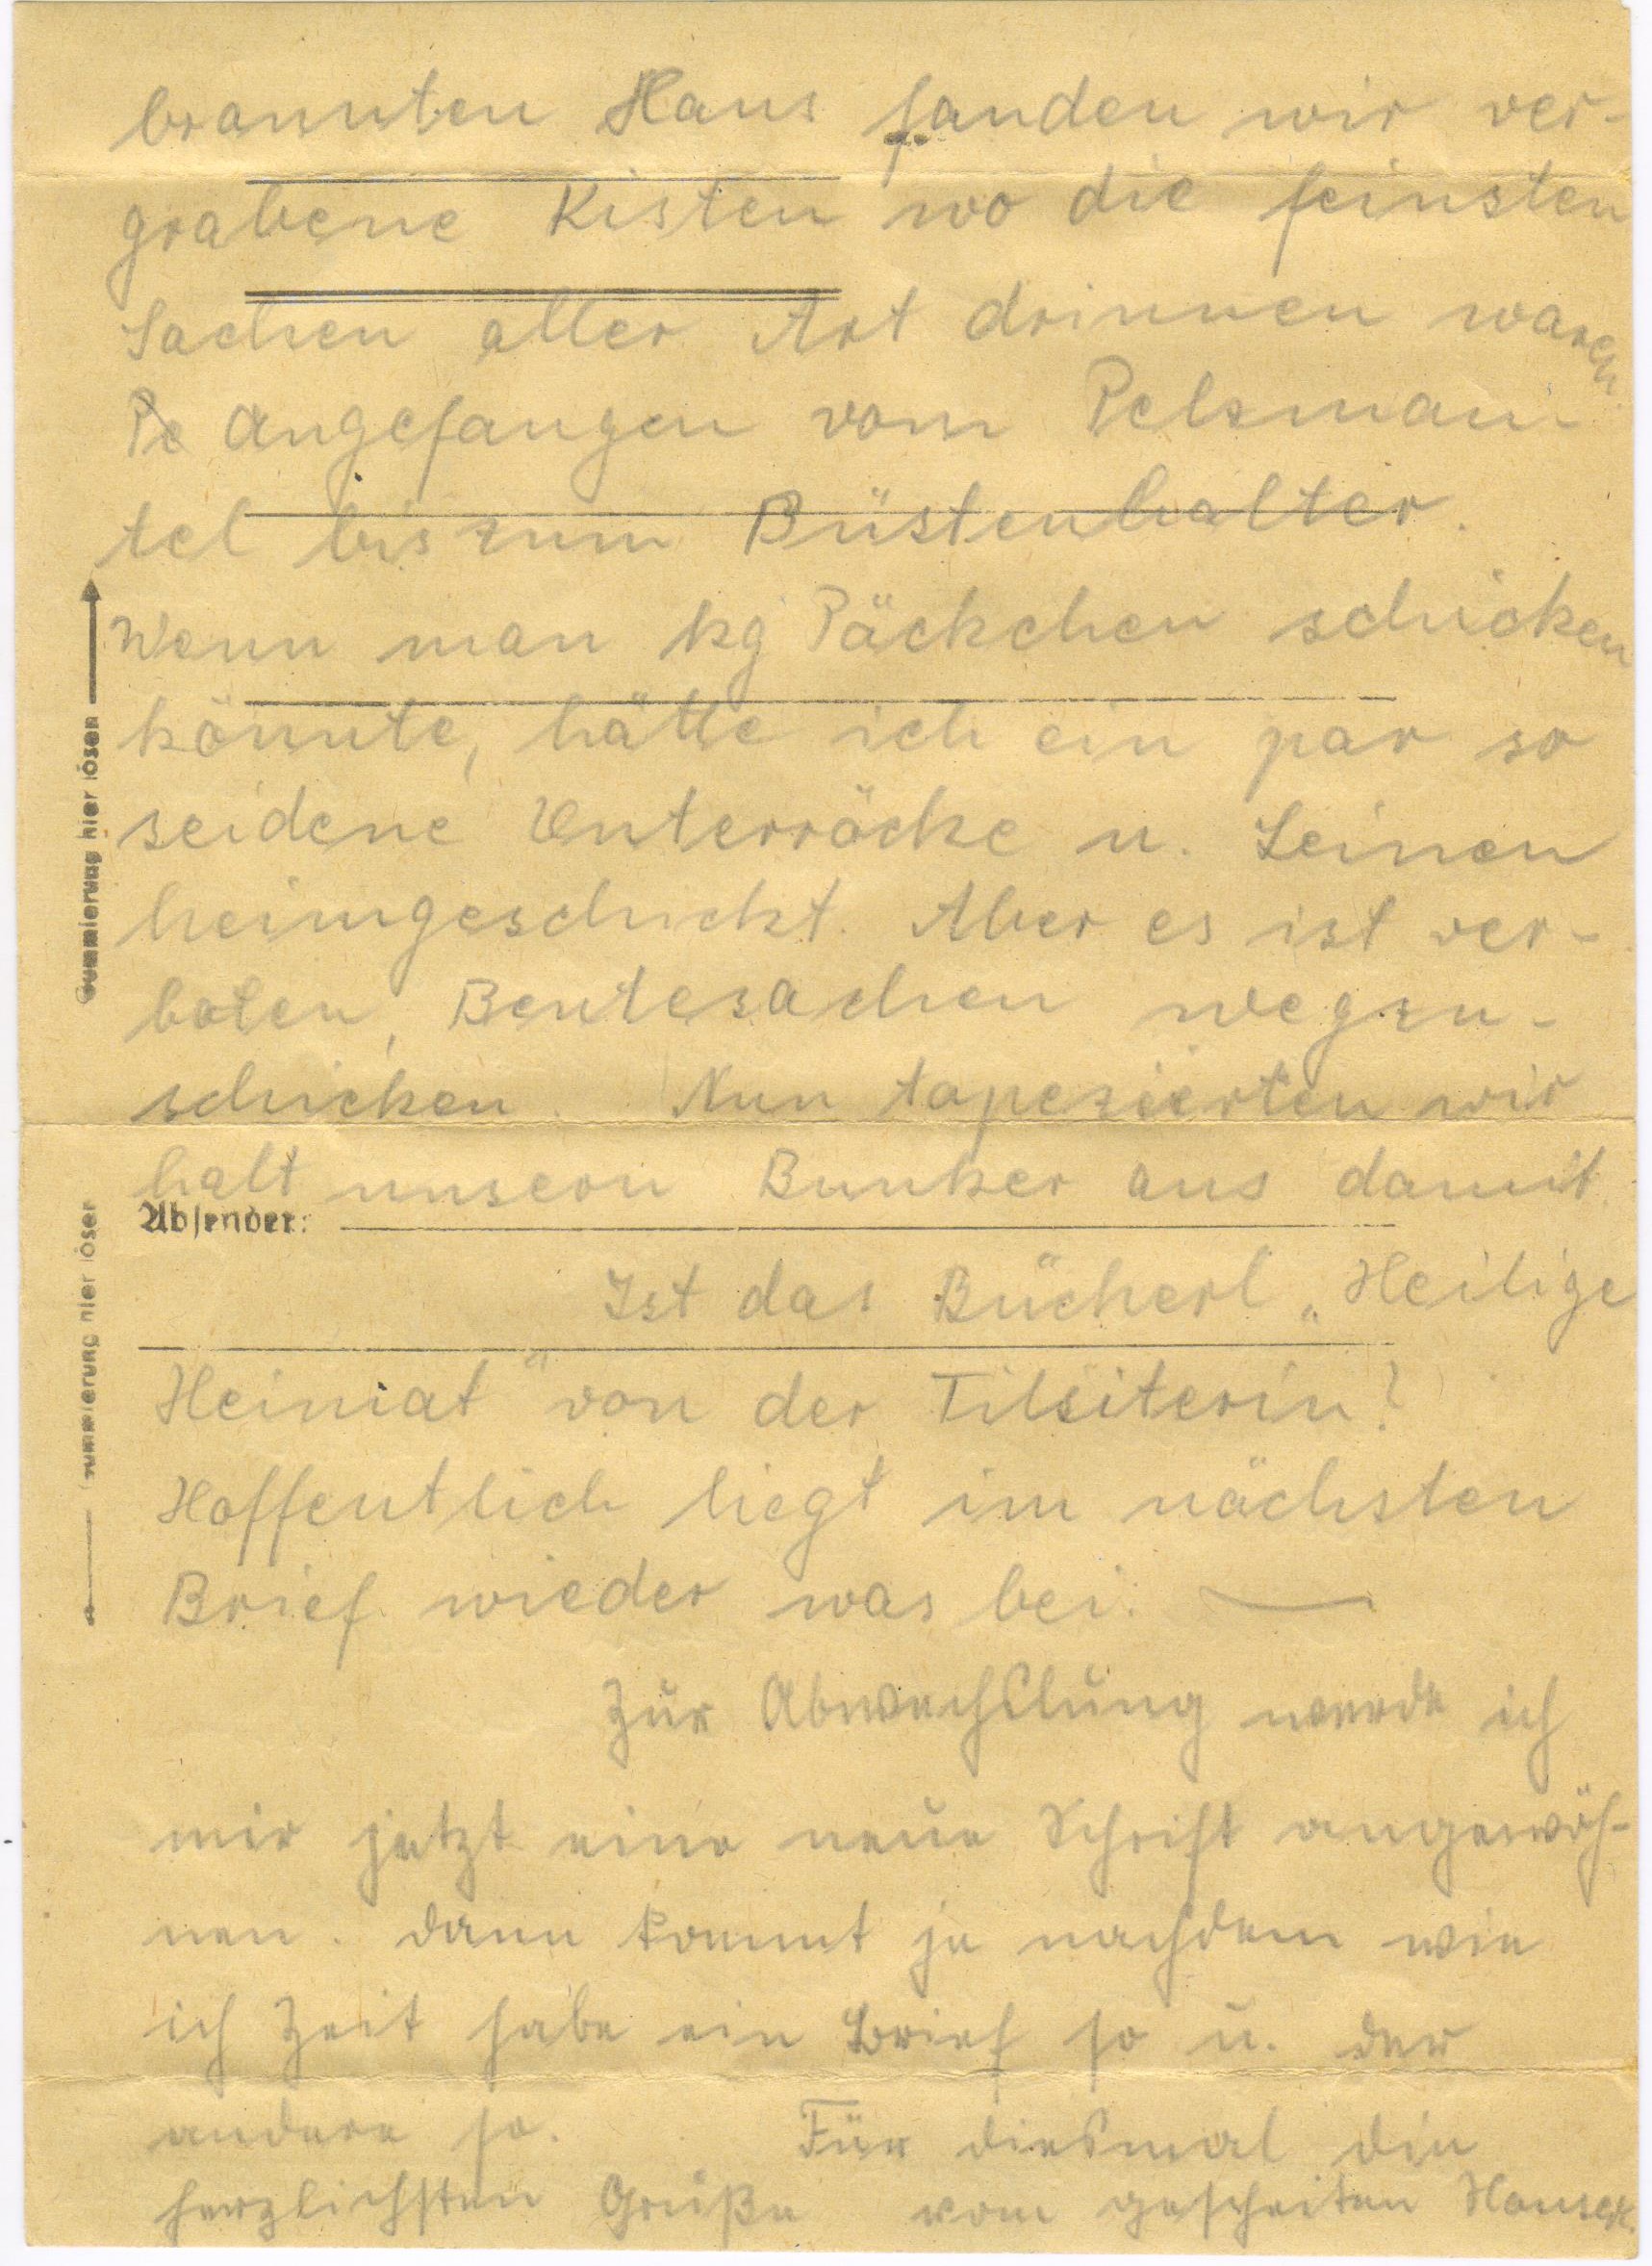 brannten Haus fanden wir ver-
grabene Kisten wo die feinsten
Sachen aller Art drinnen waren.
Pe angefangen vom Pelzman-
tel bis zum Büstenhalter.
Wenn man kg Päckchen schicken
könnte, hätte ich ein par so
seidene Unterröcke u. Leinen
heimgeschickt. Aber es ist ver-
boten, Beutesachen wegzu-
schicken. Nun tapezierten wir
halt unsern Bunker aus damit.
Absender:
Ist das Bücherl „Heilige
Heimat" von der Tilsiterin?
Hoffentlich liegt im nächsten
Brief wieder was bei. —
Zur Abwechslung werde ich
mir jetzt eine neue Schrift angewöh-
nen. Dann kommt je nachdem wie
ich Zeit habe ein Brief so u. der
andere so. Für diesmal die
herzlichsten Grüße vom gescheiten Hansek.
Gummierung hier lösen
Gummierung hier lösen